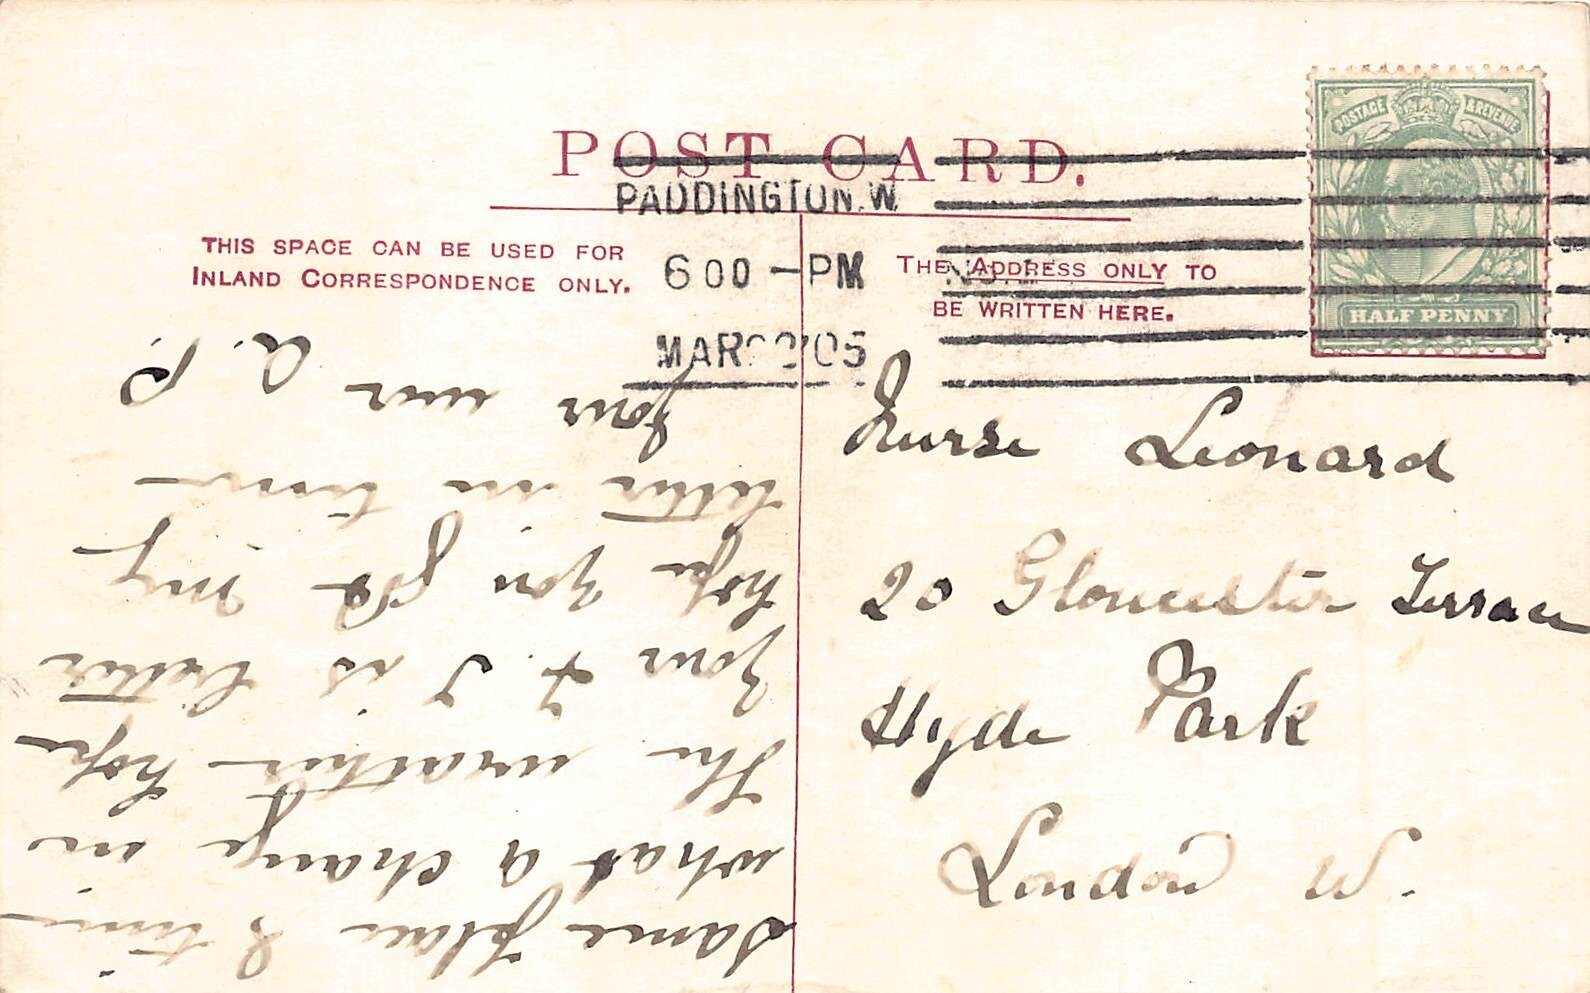 POST CARD.
THIS SPACE CAN BE USED FOR
INLAND CORRESPONDENCE ONLY.
THE ADDRESS ONLY TO
BE WRITTEN HERE.
PADDINGTON.W
6 00 - PM
MAR 05
POSTAGE & REVENUE
HALF PENNY
Nurse Leonard
20 Gloucester Terrace
Hyde Park
London W.
Same place & time
what a change in
the weather hope
your F. I is better
hope you got my
letter in time
your
a. P.